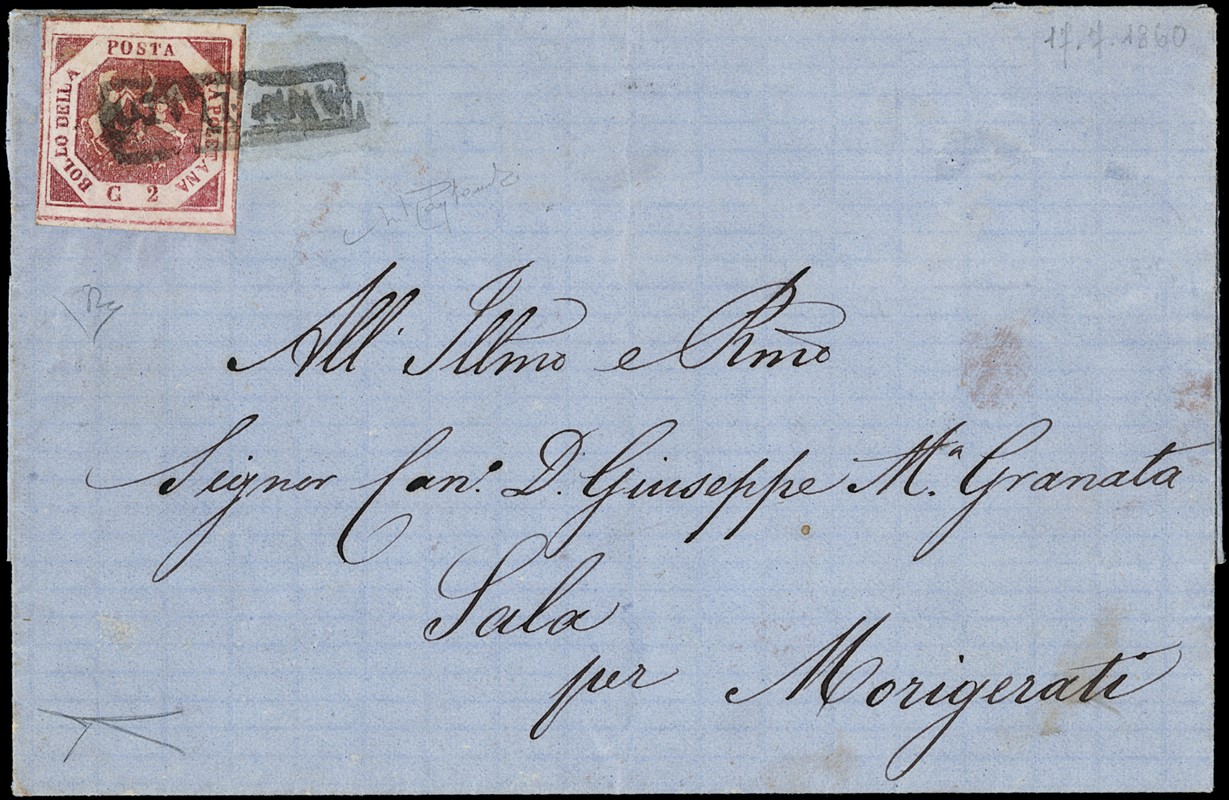 17.7.1860
POSTA
BOLLO DELLA
NAPOLETANA
G 2
All' Illmo e Rmo
Signor Can.º D. Giuseppe M.ª Granata
Sala
per Morigerati